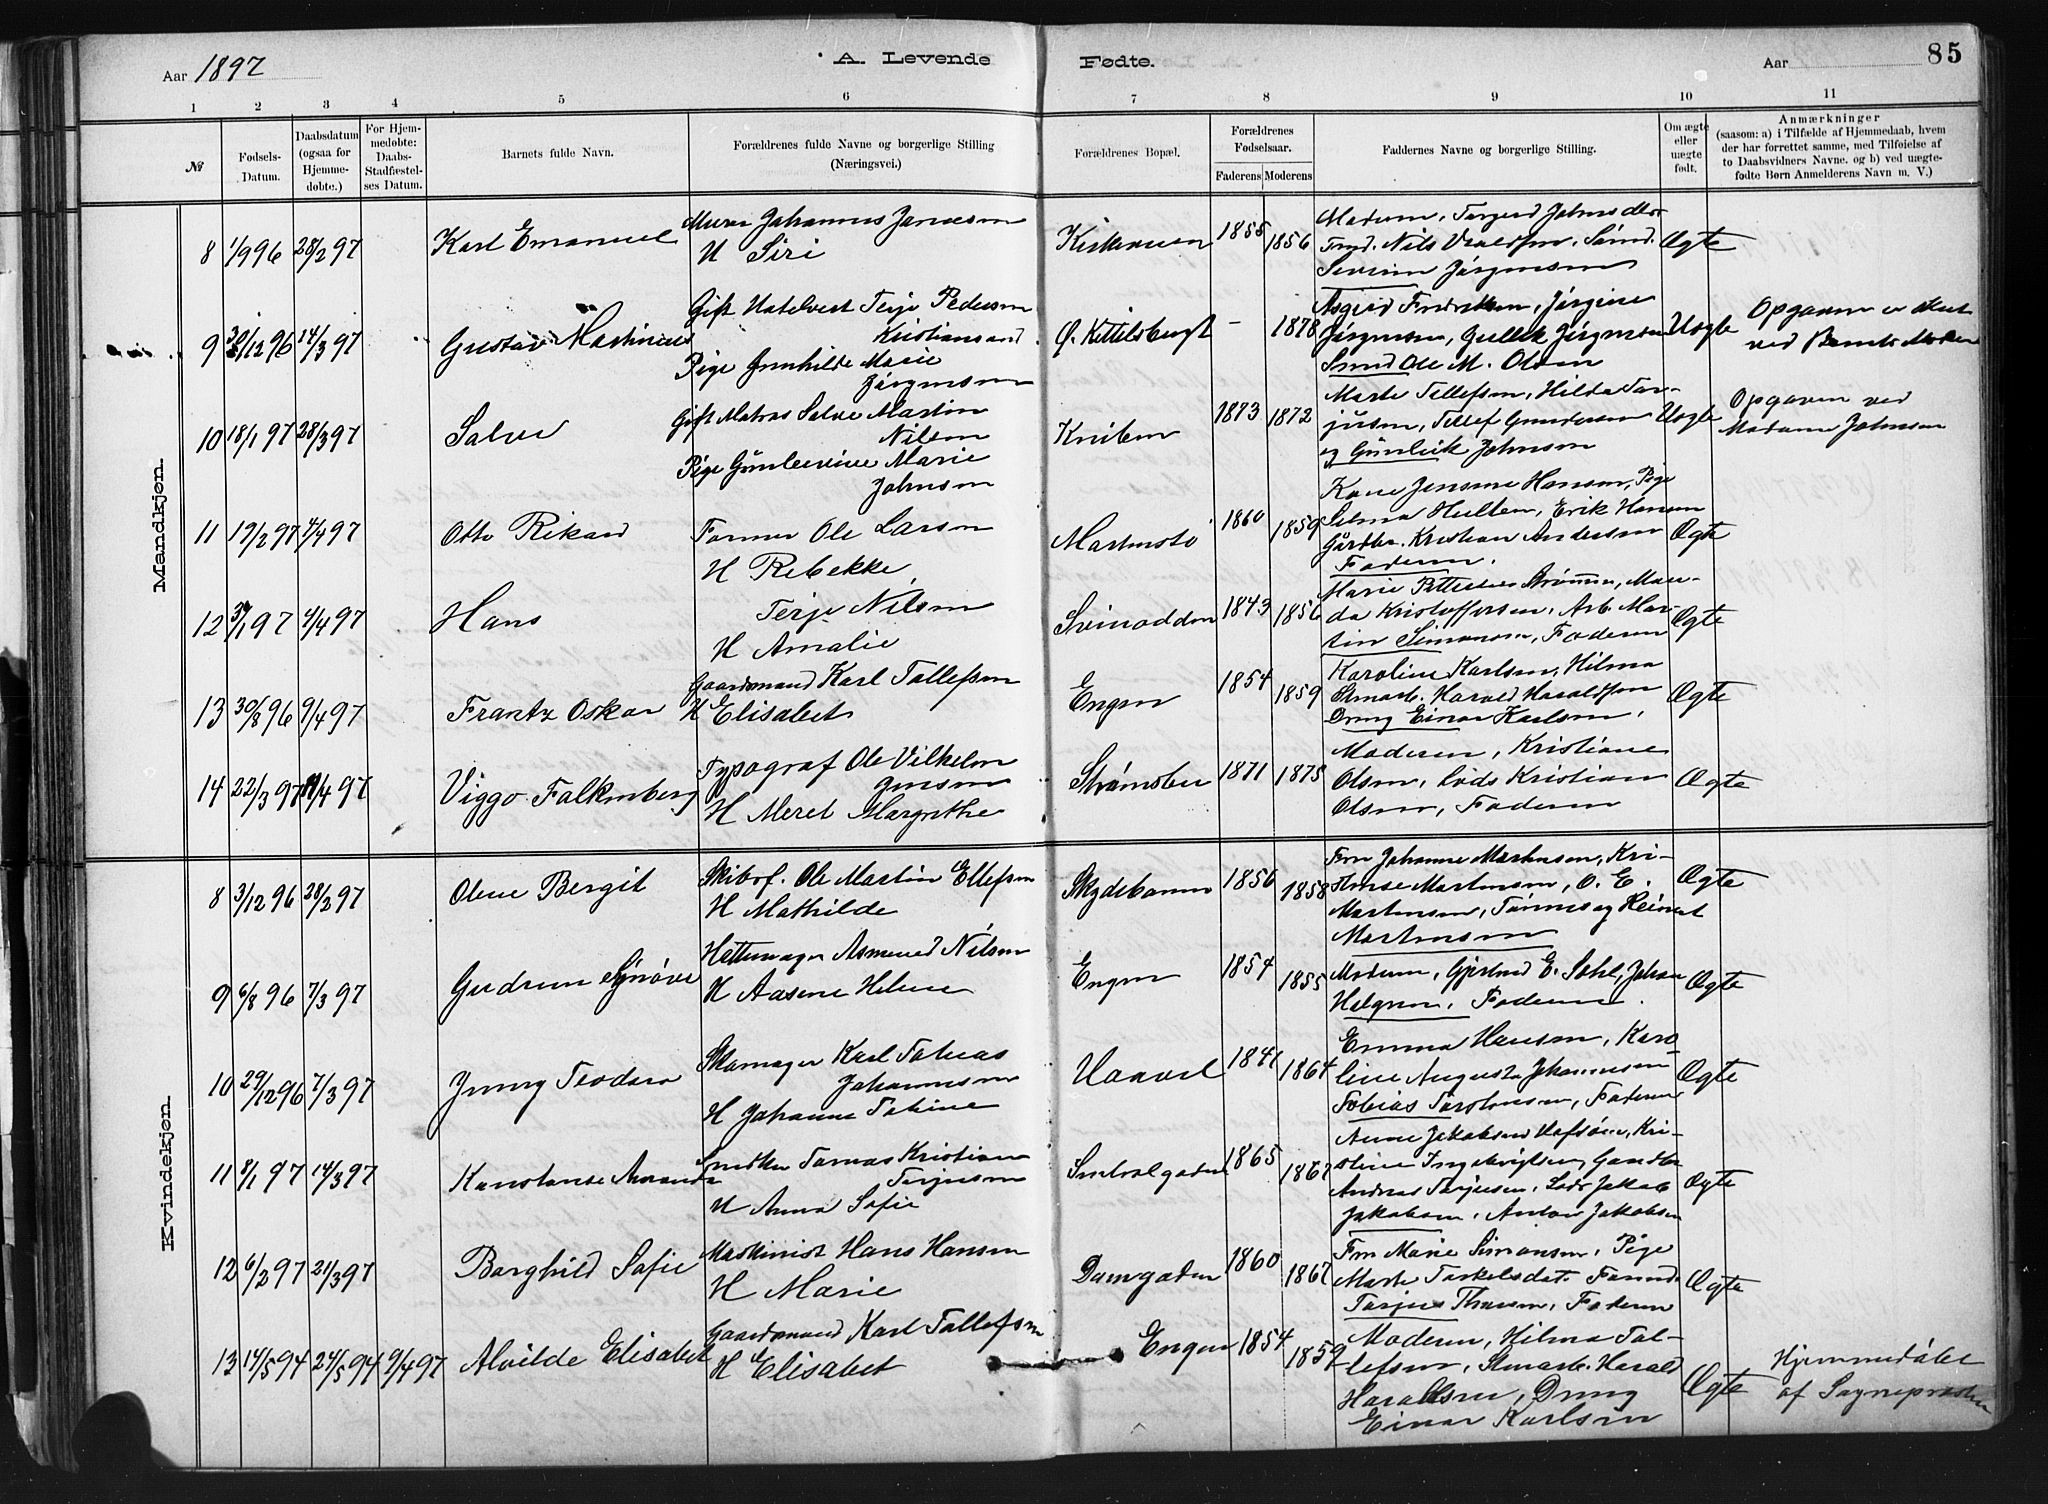 Aar 1897
A. Levende Fødte.
Aar
85
1 2 3 4 5 6 7 8 9 10 11
№
Fødsels-Datum.
Daabsdatum (ogsaa for Hjemme-døbte.)
For Hjem-medøbte: Daabs-Stadfæstel-ses Datum.
Barnets fulde Navn.
Forældrenes fulde Navne og borgerlige Stilling (Næringsvei.)
Forældrenes Bopæl.
Forældrenes Fødselsaar.
Faderens Moderens
Faddernes Navne og borgerlige Stilling.
Om ægte eller uægte født.
Anmærkninger
(saasom: a) i Tilfælde af Hjemmedaab, hvem
der har forrettet samme, med Tilføielse af
to Daabsvidners Navne. og b) ved uægte-
fødte Børn Anmelderens Navn m. V.)
Mandkjøn.
8 1/9 96 28/2 97 Karl Emanuel
Murer Johannes
H Siri
1855 1856
Nils
Ægte
9 14/3 97 Gustav Martinius
Gift Terje Pedersen
Kristiansand
Pige Gunhilde Marie
Jørgensen
Ø. Kittelsbugt
- 1878
Jørgine
Jørgensen, Gullik Jørgensen
Smed Ole M. Olsen
Uægte
Opgaven er
ved Barnets Moder
10 18/1 97 28/3 97 Salve
Gift Matros Salve Martin
Nilsen
Pige Marie
Johnsen
1873 1872
Marte Tellefsen, Hilda Tar-
jusen, Tellef Gundersen
og Gunleik Johnsen
Uægte
Opgaven ved
Madame Johnsen
11 19/2 97 4/4 97 Otto Rikard
Ole Larsen
H Rebekke
1860 1859
Kone Jensine Hansen, Pige
Selma Hulten, Erik Hansen
Kristian Andersen
Faderen.
Ægte
12 4/4 97 Hans
Terje Nilsen
H Amalie
Svinodden
1843 1856
Marie Pettersen Strømmen,
Kristoffersen, Arb. Mar-
tin Simonsen, Faderen
Ægte
13 30/8 96 9/4 97 Frantz Oskar
Gaardmand Karl Tallefsen
H Elisabet
Engen
1854 1859
Karoline Karlsen, Hilma
Harald Haraldsen
Dreng Einar Karlsen.
Ægte
14 22/3 97 Viggo Falkenberg
Typograf Ole Vilhelm
Jensen
H Meret Margrethe
Strømsbu
1871 1875
Moderen, Kristiane
Olsen, Lods Kristian
Olsen, Faderen
Ægte
Kvindekjøn.
8 3/12 96 28/2 97 Olene Bergit
Skibsf. Ole Martin Ellefsen
H Mathilde
1856 1858
Fru Johanne Martensen, Kri-
stense Martensen, O. E.
Martensen, Tønnes og Reinert
Martensen
Ægte
9 6/8 96 7/3 97 Gudrun Synøve
Hattemager Asmund Nilsen
H Aasene Helene
Engen
1854 1855
Moderen, Gjertrud E. Johan
Faderen.
Ægte
10 29/12 96 7/3 97 Jenny Teodora
Skomager Karl Tobias
Johannesen
H Johanne Tobine
1841 1864
Emma Hansen, Karo-
line Augusta Johannesen
Tobias Torstensen, Faderen
Ægte
11 8/1 97 14/3 97 Konstanse Amanda
Kristian
Tarjusen
H Anna Sofie
1865 1867
Anne Jakobsen Kri-
stine
Andreas Tarjusen, Lods Jakob
Jakobsen, Anton Jakobsen
Ægte
12 6/2 97 21/3 97 Borghild Sofie
Maskinist Hans Hansen
H Marie
Damgaden
1860 1867
Fru Marie Simonsen, Pige
Marte Torkelsdat.
Tarjus Faderen
Ægte
13 14/5 94 24/5 94 9/4 97 Alvilde Elisabet
Gaardmand Karl Tallefsen
H Elisabet
Engen
1854 1859
Moderen, Hilma Tal-
lefsen, Harald
Haraldsen, Dreng
Einar Karlsen
Ægte
Hjemmedøbt
af Sognepresten